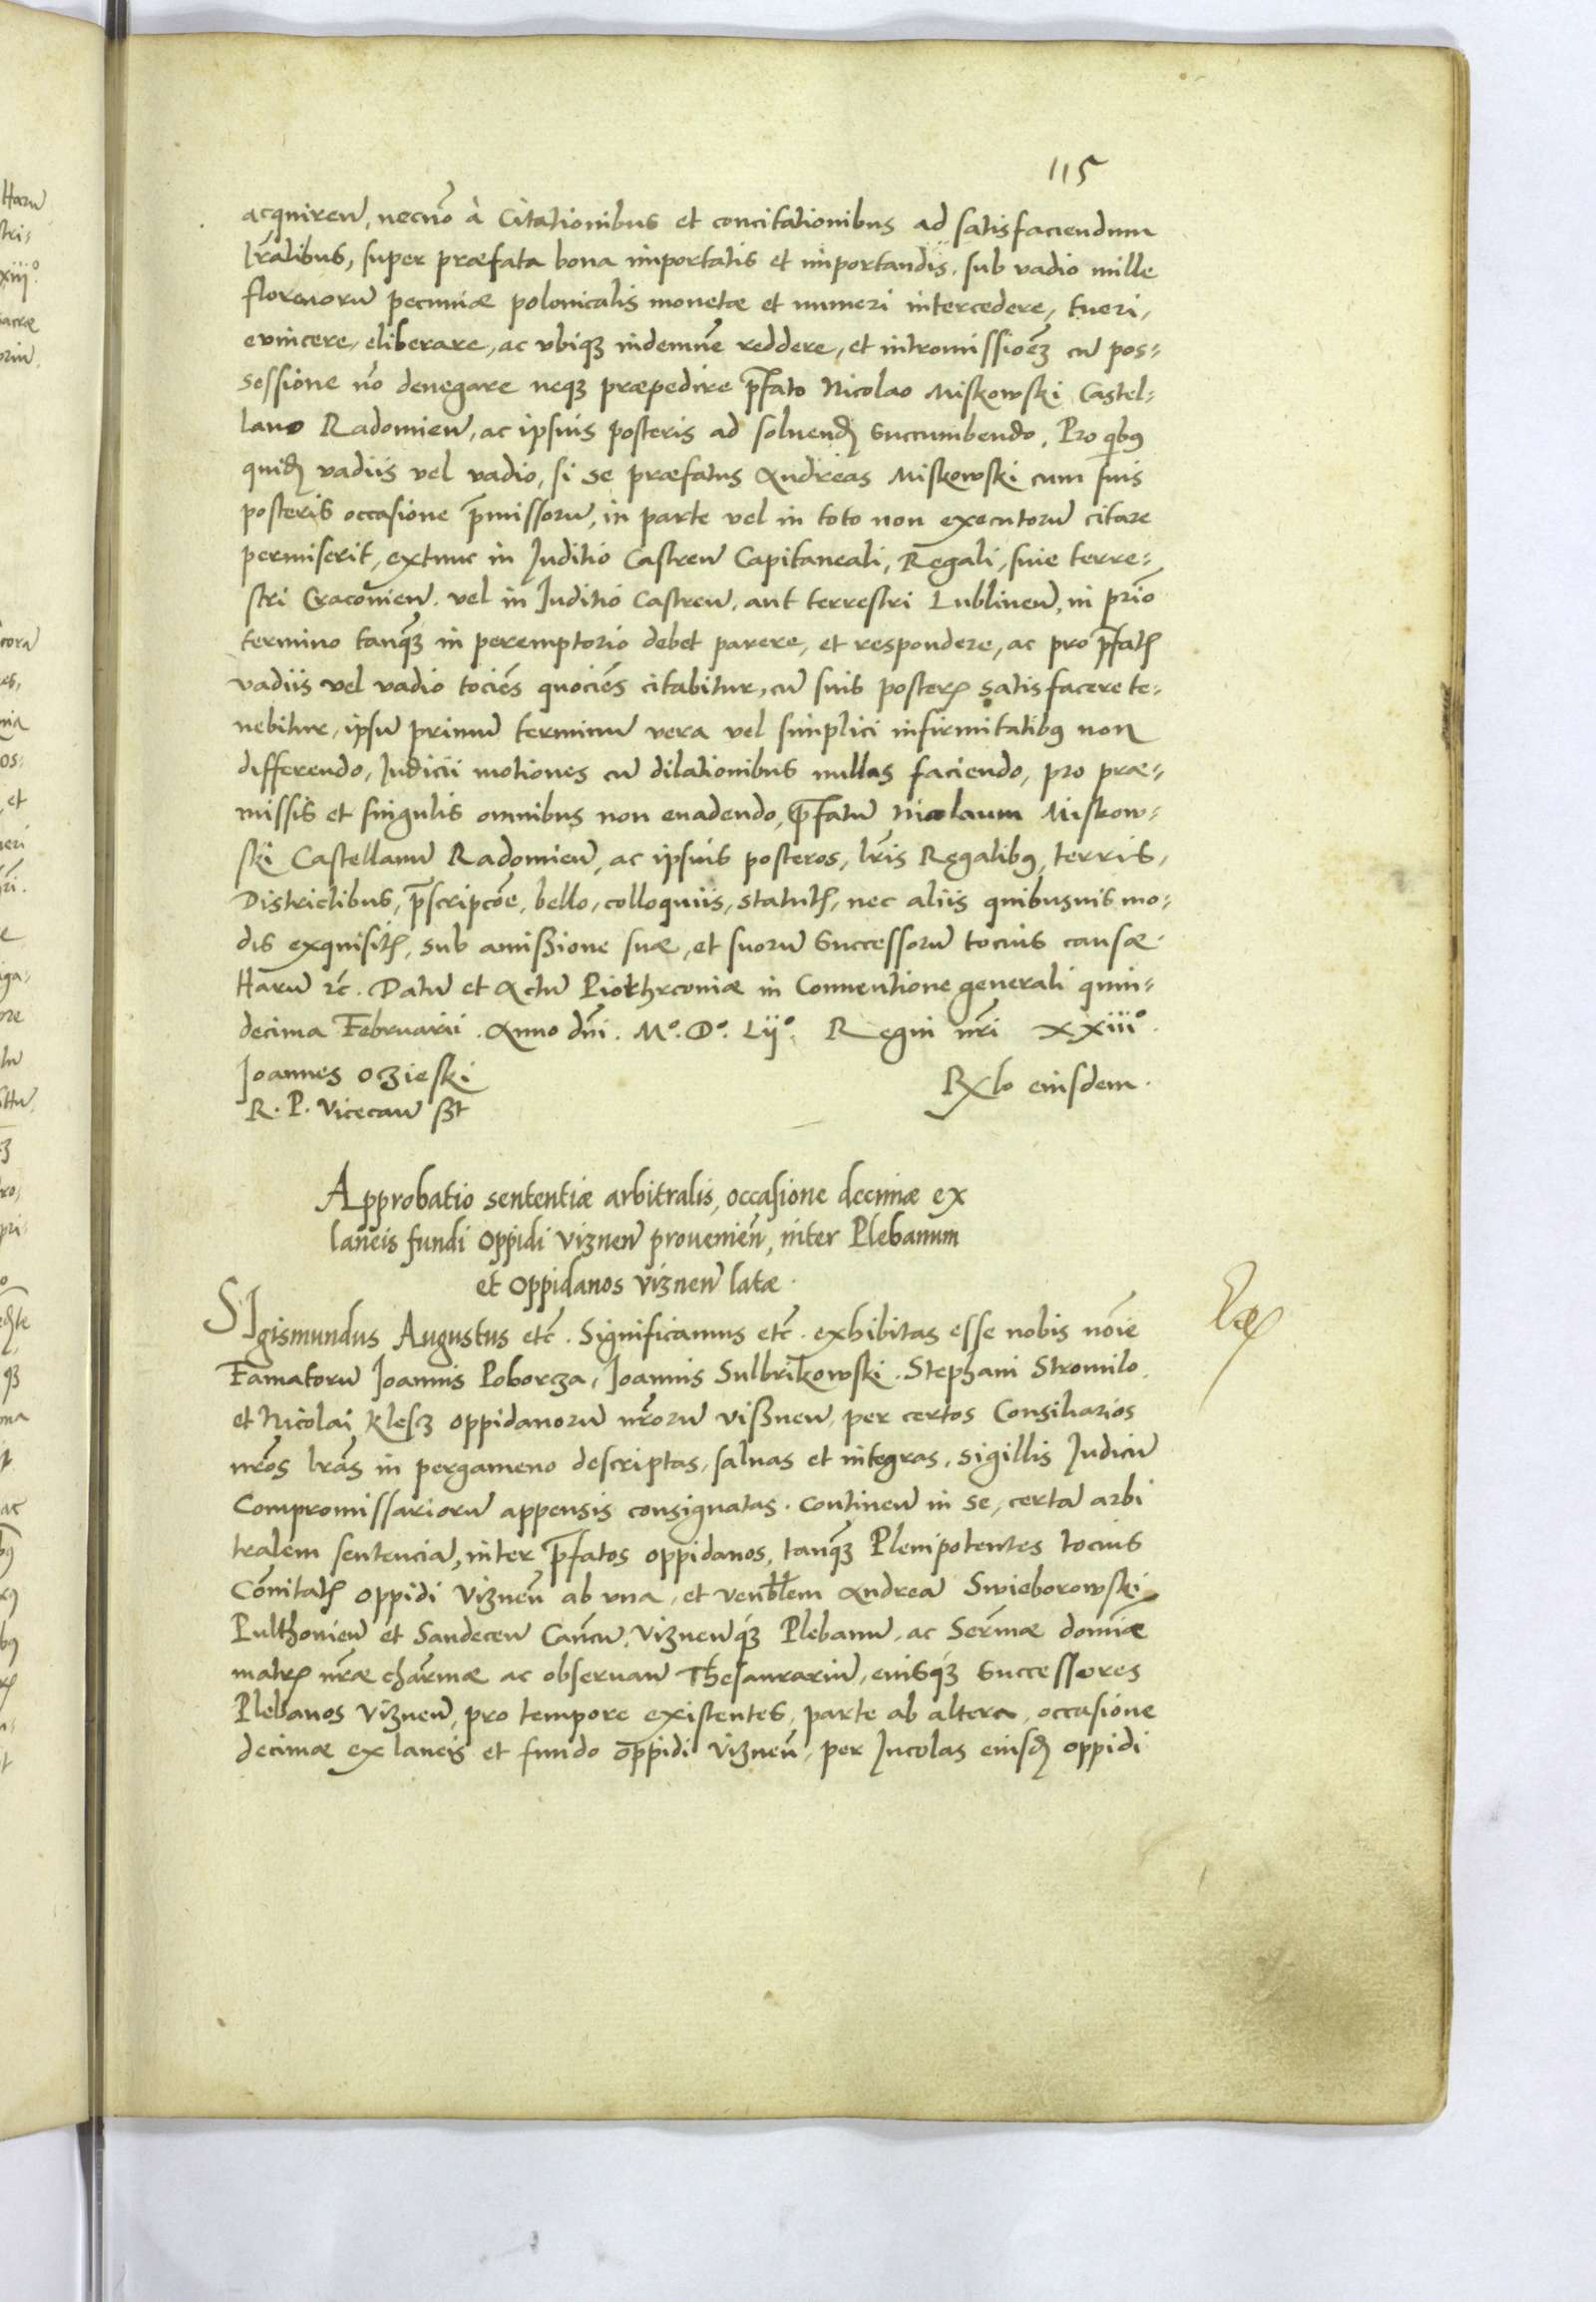 115
acquireñ, necnõ à Citationibus et concitationibus ad satisfaciendum
lr̃alibus, super præfata bona importatis et importandis, sub vadio mille
florenorũ pecuniæ polonicalis monetæ et numeri intercedere, tueri,
euincere, eliberare, ac vbiqȝ indemnẽ reddere, et intromissioẽȝ cũ pos-
sessione nõ denegare neqȝ præpedire p̃fato Nicolao Miskowski Castel-
lano Radomieñ, ac ipsius posteris ad soluendȝ succumbendo, Pro qibꝰ
quidȝ vadiis vel vadio, si se præfatus Andreas Miskowski cum suis
posteris occasione p̃missorũ, in parte vel in toto non executorũ citare
permiserit, extunc in Juditio Castreñ Capitaneali, Regali, siue terre-
stri Cracouieñ. vel in Juditio Castreñ, aut terrestri Lublineñ, in prĩo
termino tanqȝ in peremptorio debet parere, et respondere, ac pro p̃fatꝭ
vadiis vel vadio tociẽs quociẽs citabitur, cũ suis posterꝭ satisfacere te-
nebitur, ipsũ primũ terminũ vera vel simplici infirmitatibꝰ non
differendo, Judicii motiones cũ dilationibus nullas faciendo, pro præ-
missis et singulis omnibus non euadendo, p̃fatũ Nicolaum Miskow-
ski Castellanũ Radomieñ, ac ipsius posteros, lr̃is Regalibꝰ, terris,
Districtibus, p̃scripcõe, bello, colloquiis, statutꝭ, nec aliis quibusuis mo-
dis exquisitꝭ, sub amißione suæ, et suorũ Successorũ tocius causæ.
Harũ ꝛc̃. Datũ et Actũ Piotrhconiæ in Conuentione generali quin-
decima Februarii. Anno dñi. Mº. Dº. Lijº. Regni nr̃i XXiiiº.
Joannes Oczieski
R. P. Vicecañ ßt
Rxlo eiusdem.
Approbatio sententiæ arbitralis, occasione decimæ ex
laneis fundi oppidi Viznen̄ prouenieñ, inter Plebanum
et oppidanos Viznen̄ latæ.
SIgismundus Augustus etc̃. Significamus etc̃. exhibitas esse nobis noĩe
Famatorũ Joannis Poborcza, Joannis Sulbrikowski. Stephani Stromilo.
et Nicolai Klescz oppidanorũ nr̃orũ vißneñ, per certos Consiliarios
nr̃os lr̃as in pergameno descriptas, saluas et integras, sigillis Judicũ
Compromissariorũ appensis consignatas. Contineñ in se, certã arbi
tralem sentenciã, inter p̃fatos oppidanos, tanqȝ Plenipotentes tocius
Cõitatꝭ oppidi Vizneñ ab vna, et venb̃lem Andreã Swieborowski
Pulthonieñ et Sandeceñ Cañcũ. Vizneñqȝ Plebanũ, ac Serm̃æ domĩæ
matrꝭ nr̃æ charm̃æ ac obseruañ Thesaurariũ, eiusqȝ Successores
Plebanos Vizneñ, pro tempore existentes, parte ab altera, occasione
decimæ ex laneis et fundo oppidi Vizneñ, per Jncolas eiusdȝ oppidi